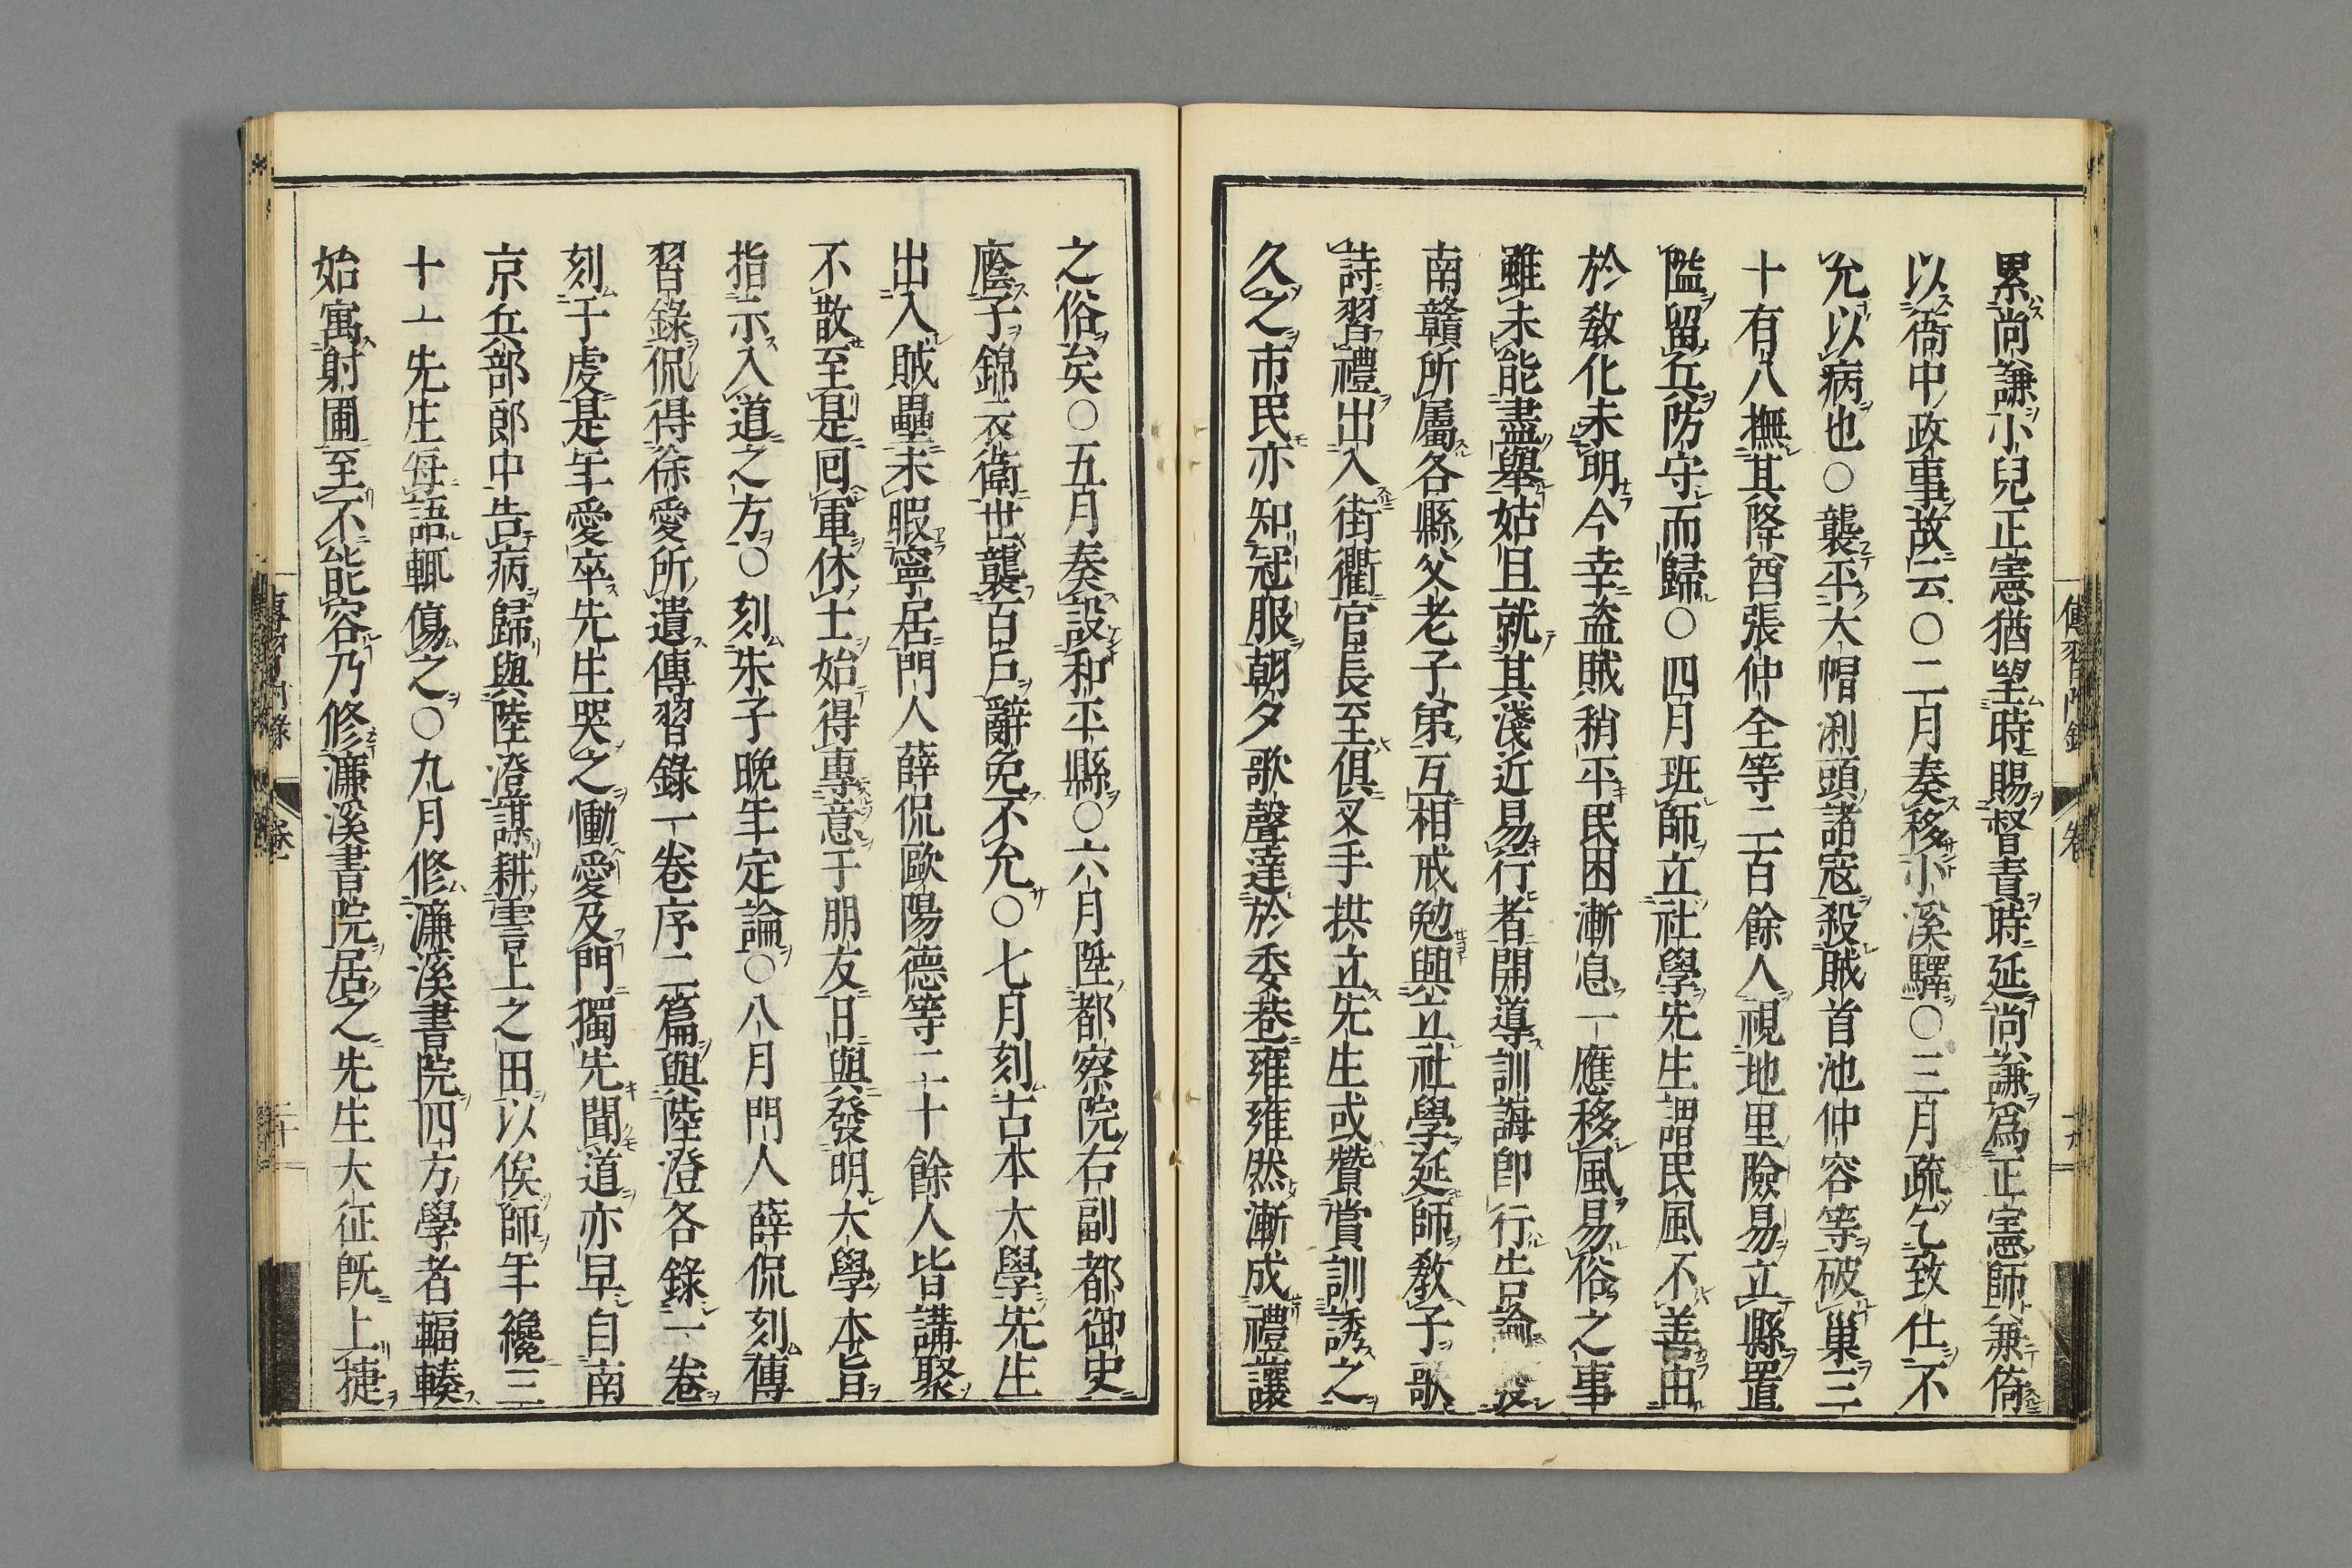 傳習附錄
卷
累尚謙小兒正憲猶望時賜督責時延尚謙爲正憲師兼倚
以衙中政事故云○二月奏移小溪驛○三月疏乞致仕不
允以病也○襲平大帽浰頭諸寇殺賊首池仲容等破巢三
十有八撫其降酋張仲全等二百餘人視地里險易立縣置
隘留兵防守而歸○四月班師立社學先生謂民風不善由
於敎化未明今幸盜賊稍平民困漸息一應移風易俗之事
雖未能盡舉姑且就其淺近易行者開導訓誨卽行告諭
南贛所屬各縣父老子弟互相戒勉興立社學延師敎子歌
詩習禮出入街衢官長至俱叉手拱立先生或贊賞訓誘之
久之市民亦知冠服朝夕歌聲達於委巷雍雍然漸成禮讓
之俗矣○五月奏設和平縣○六月陞都察院右副都御史
廕子錦衣衞世襲百戶辭免不允○七月刻古本大學先生
出入賊壘未暇寧居門人薛侃歐陽德等二十餘人皆講聚
不散至是囘軍休士始得專意于朋友日與發明大學本旨
指示入道之方○刻朱子晚年定論○八月門人薛侃刻傳
習錄侃得徐愛所遺傳習錄一卷序二篇與陸澄各錄一卷
刻于虔是年愛卒先生哭之慟愛及門獨先聞道亦早自南
京兵部郎中告病歸與陸澄謀耕霅上之田以俟師年纔三
十一先生每語輒傷之○九月修濂溪書院四方學者輻輳
始寓射圃至不能容乃修濂溪書院居之先生大征旣上捷
傳習附錄
卷
二十